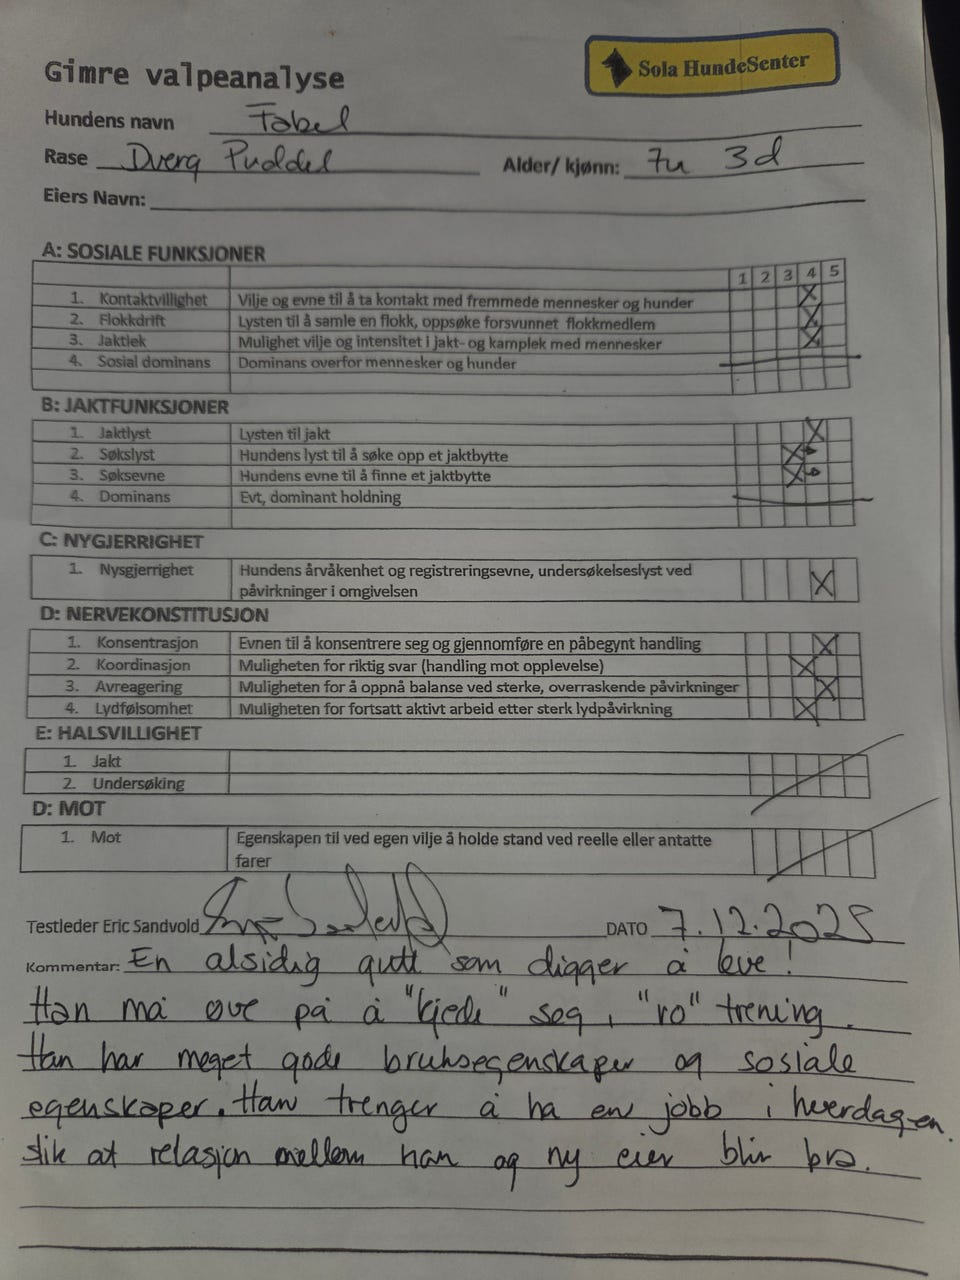 Gimre valpeanalyse
Sola HundeSenter
Hundens navn Fabel
Rase Dverg Puddel Alder/ kjønn: 7u 3d
Eiers Navn:
A: SOSIALE FUNKSJONER
1 2 3 4 5
1. Kontaktvillighet Vilje og evne til å ta kontakt med fremmede mennesker og hunder X
2. Flokkdrift Lysten til å samle en flokk, oppsøke forsvunnet flokkmedlem X
3. Jaktlek Mulighet vilje og intensitet i jakt- og kamplek med mennesker X
4. Sosial dominans Dominans overfor mennesker og hunder
B: JAKTFUNKSJONER
1. Jaktlyst Lysten til jakt X
2. Søkslyst Hundens lyst til å søke opp et jaktbytte X
3. Søksevne Hundens evne til å finne et jaktbytte X
4. Dominans Evt, dominant holdning
C: NYGJERRIGHET
1. Nysgjerrighet Hundens årvåkenhet og registreringsevne, undersøkelseslyst ved
påvirkninger i omgivelsen X
D: NERVEKONSTITUSJON
1. Konsentrasjon Evnen til å konsentrere seg og gjennomføre en påbegynt handling X
2. Koordinasjon Muligheten for riktig svar (handling mot opplevelse) X
3. Avreagering Muligheten for å oppnå balanse ved sterke, overraskende påvirkninger X
4. Lydfølsomhet Muligheten for fortsatt aktivt arbeid etter sterk lydpåvirkning X
E: HALSVILLIGHET
1. Jakt
2. Undersøking
D: MOT
1. Mot Egenskapen til ved egen vilje å holde stand ved reelle eller antatte
farer
Testleder Eric Sandvold DATO 7.12.2025
Kommentar: En alsidig gutt som digger å leve!
Han må øve på å "kjede" seg, "ro" trening.
Han har meget gode bruksegenskaper og sosiale
egenskaper. Han trenger å ha en jobb i hverdagen.
slik at relasjon mellom han og ny eier blir bra.